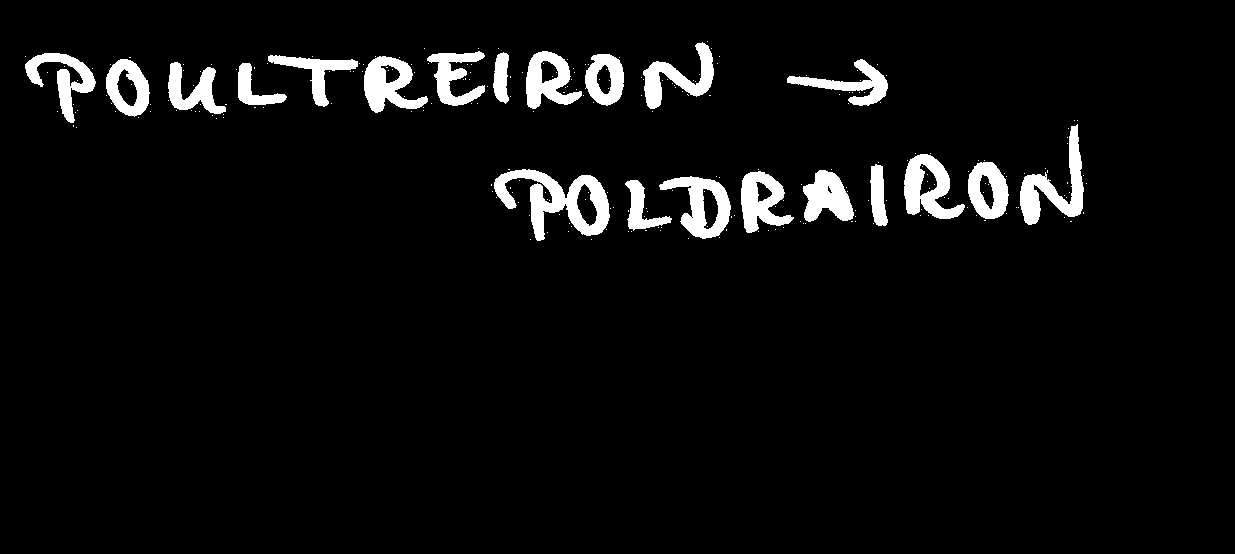 POULTREIRON →
POLDRAIRON